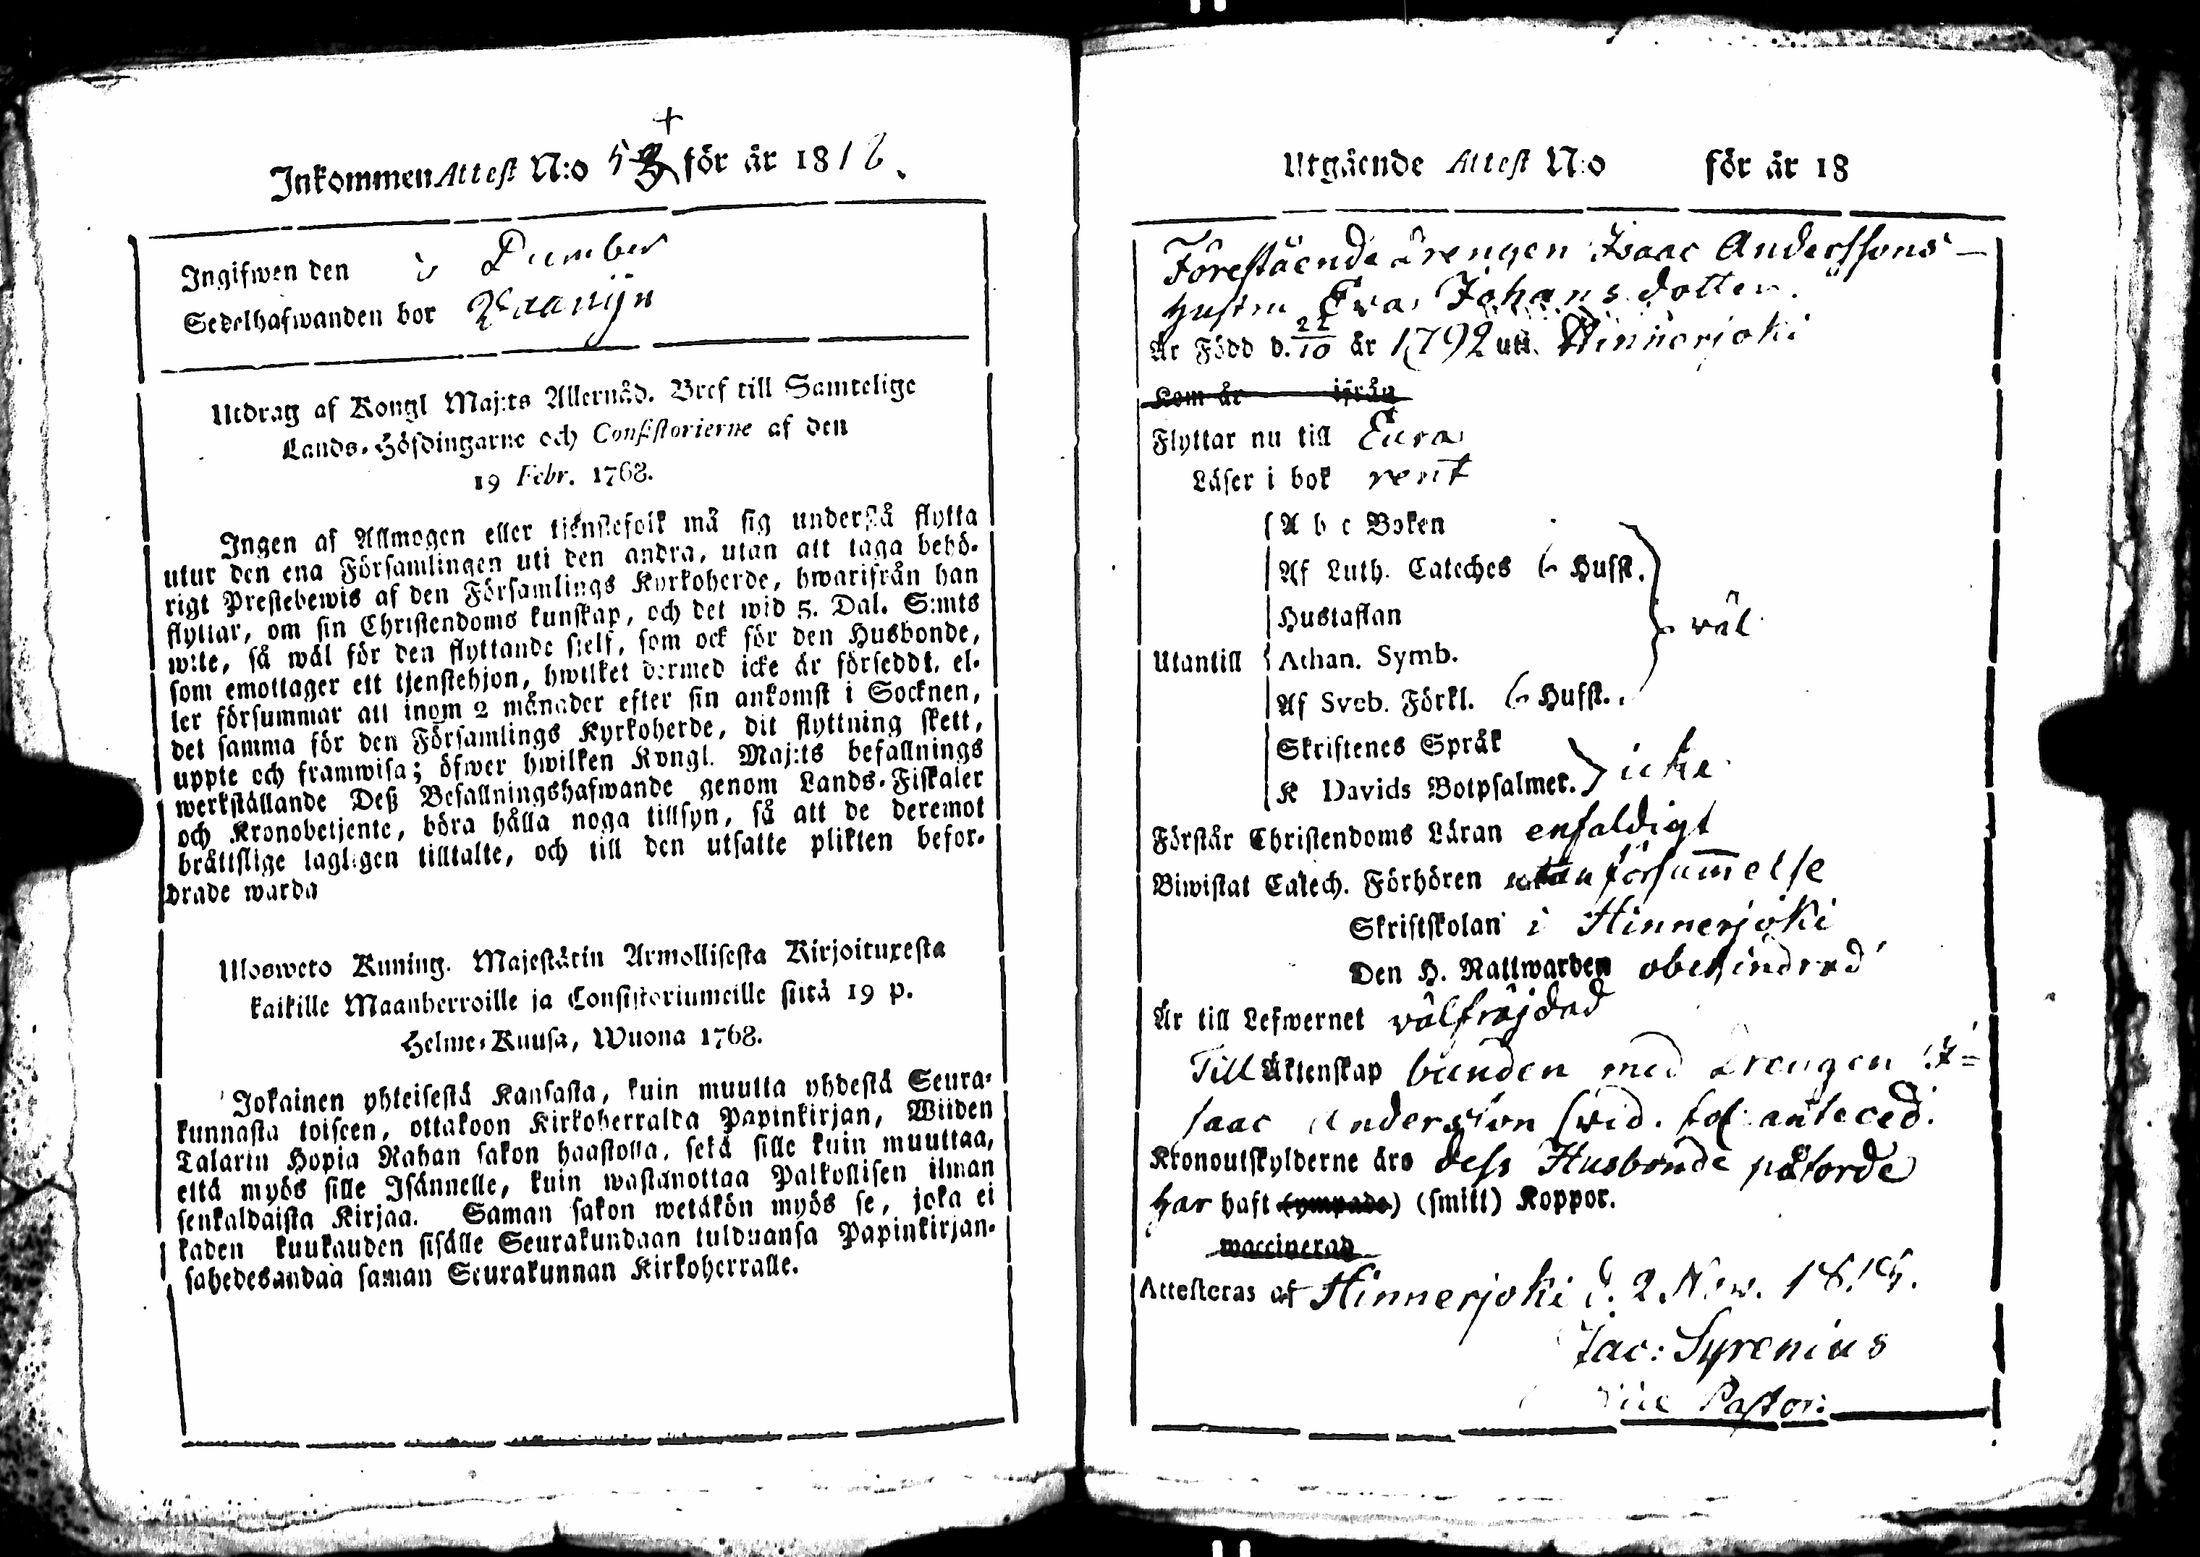 Inkommen Attest N:o 53 för år 1818.
Ingifwen den i
Sedelhafwanden bor
Utdrag af Kongl Maj:ts Allernåd. Bref till Samtelige
Lands-Höfdingarne och Consistorierne af den
19 Febr. 1768.
Ingen af Allmogen eller tjenstefolk må sig understå flytta
utur den ena Församlingen uti den andra, utan att taga behö-
rigt Prestebewis af den Församlings Kyrkoherde, hwarifrån han
flyttar, om sin Christendoms kunskap, och det wid 5. Dal. S:mts
wite, så wäl för den flyttande sjelf, som ock för den Husbonde,
som emottager ett tjenstehjon, hwilket dermed icke är försedt, el-
ler försummar att inom 2 månader efter sin ankomst i Socknen,
det samma för den Församlings Kyrkoherde, dit flyttning skett,
uppte och framwisa; öfwer hwilken Kongl. Maj:ts befallnings
werkställande Deß Befallningshafwande genom Lands-Fiskaler
och Kronobetjente, böra hålla noga tillsyn, så att de deremot
bråttslige lagligen tilltalte, och till den utsatte plikten befor-
drade warda
Ulosweto Kuning. Majestätin Armollisesta Kirjoituxesta
kaikille Maanherroille ja Consistoriumeille siitä 19 p.
Helme-Kuusa, Wuona 1768.
Jokainen yhteisestä Kansasta, kuin muutta yhdestä Seura-
kunnasta toiseen, ottakoon Kirkoherralda Papinkirjan, Wiiden
Talarin Hopia Rahan sakon haastolla, sekä sille kuin muuttaa,
että myös sille Isännelle, kuin wastanottaa Palkollisen ilman
senkaldaista Kirjaa. Saman sakon wetäkön myös se, joka ei
kaden kuukauden sisälle Seurakundaan tulduansa Papinkirjan-
sahedesandaa saman Seurakunnan Kirkoherralle.
Utgående Attest N:o för år 18
Förestående drengen Isaac Anderssons
hustru Eva Johansdotter.
Är Född d. 22/10 år 1792 uti Hinnerjoki
Kom år ifrån
Flyttar nu till Eura
Läser i bok rent
A b c Boken
Af Luth. Cateches 6 Hufst.
Hustaflan
väl
Utantill Athan. Symb.
Af Sveb. Förkl. 6 Hufst.
Skriftenes Språk
K Davids Botpsalmer. icke
Förstår Christendoms Läran enfaldigt
Biwistat Catech. Förhören utan försummelse
Skriftskolan i Hinnerjoki
Den H. Nattwarden obehindrad
Är till Lefwernet välfräjdad
Till Äktenskap bunden med drengen I=
saac Andersson (vid. fol. anteced.
Kronoutskylderne äro dess Husbonde påförde
Har haft (ympade) (smitt) Koppor.
waccinerad
Attesteras af Hinnerjoki d. 2 Nov. 1818.
Jac: Syrenius
Vice Pastor.